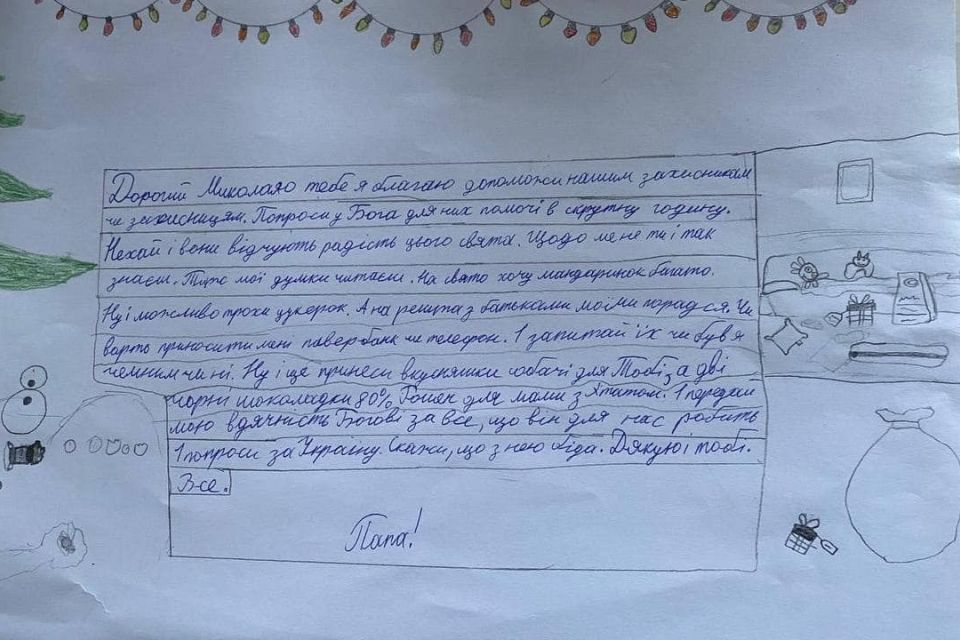 Дорогий Миколаю тебе я благаю допоможи нашим захисникам
чи захисницям. Попроси у Бога для них помочі в скрутну годину.
Нехай і вони відчують радість цього свята. Щодо мене ти і так
знаєш. Ти ж мої думки читаєш. На свято хочу мандаринок багато.
Ну і можливо трохи цукерок. А на решта з батьками моїми порадься. Чи
варто приносити мені павербанк чи телефон. І запитай їх чи був я
чемним чи ні. Ну і ще принеси вкусняшки собачі для Тобі, а дві
чорні шоколадки 80% Рошен для мами з татом. І передай
мою вдячність Богові за все, що він для нас робить
І попроси за Україну. Скажи, що з нею біда. Дякую і тобі.
Все.
Папа!